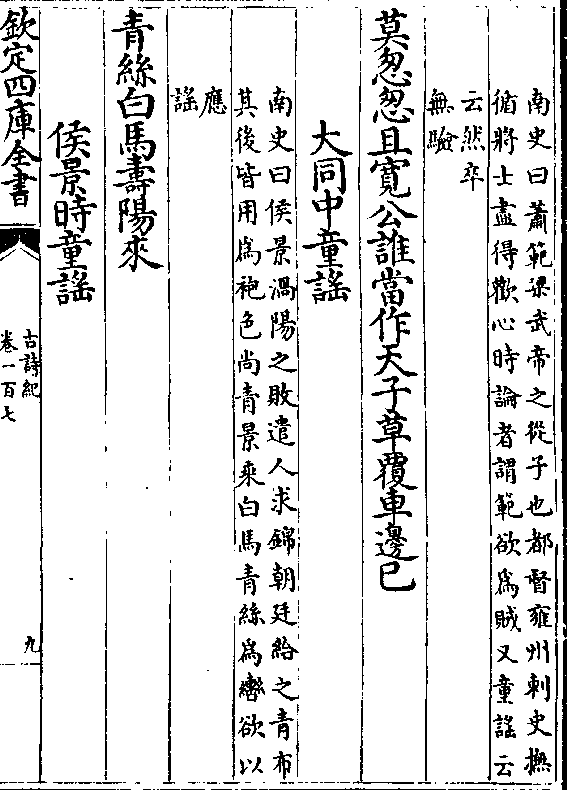 南史曰蕭範梁武帝之從子也都督雍州刺史撫
循將士盡得歡心時論者謂範欲為賊又童謡云
云然卒
無驗
莫怱怱且寛公誰當作天子草覆車邊已
大同中童謡
南史曰侯景渦陽之敗遣人求錦朝廷給之青布
其後皆用為袍色尚青景乘白馬青絲為轡欲以
應
謡
青絲白馬壽陽來
侯景時童謡
欽定四庫全書
古詩紀
卷一百七
九